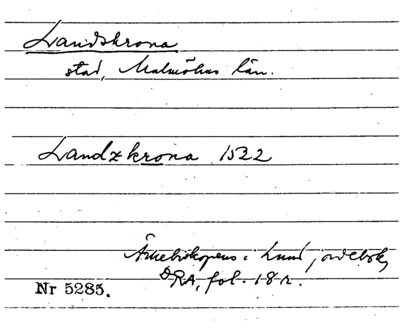 Landskrona
stad, Malmöhus län.
Landzkrona 1522
Ärkebiskopens i Lund jordebok,
DRA, fol. 18 r.
Nr 5285.